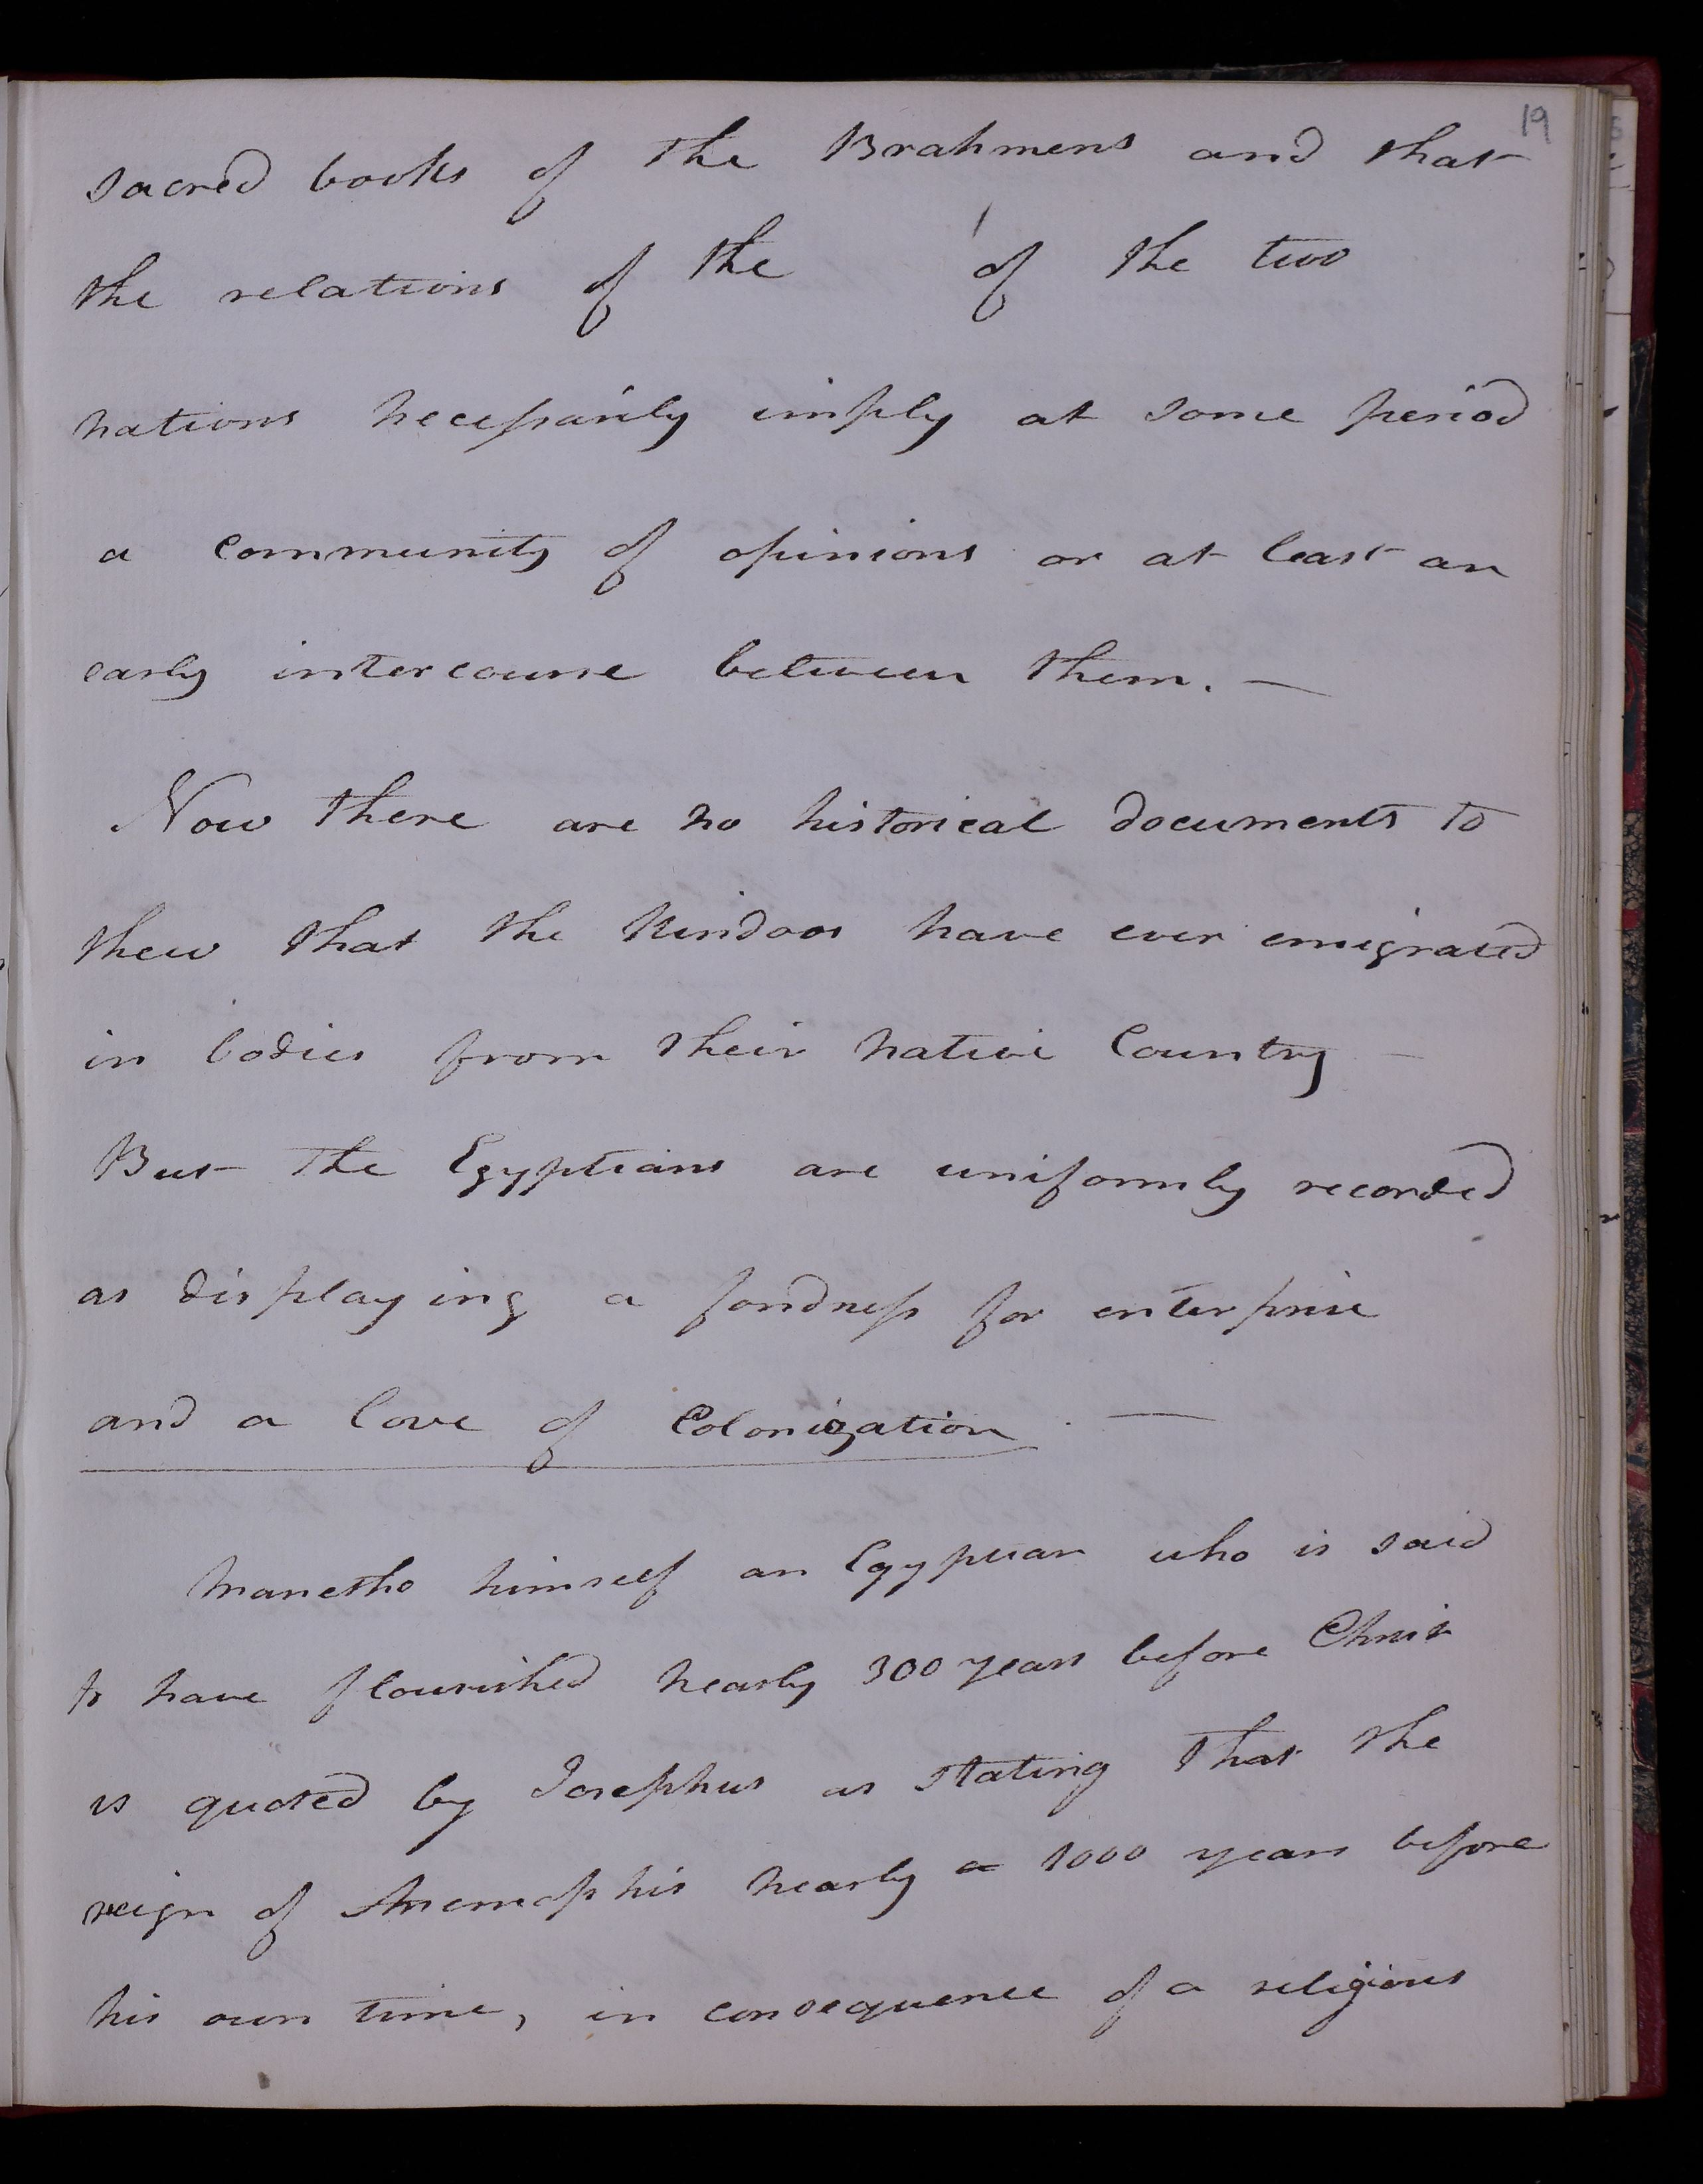 19
sacred books of the Brahmens and that
the relations of the of the two
nations necessarily imply at some period
a community of opinions or at least an
early intercourse between them. —
Now there are no historical documents to
shew that the Hindoos have ever emigrated
in bodies from their native Country —
But the Egyptians are uniformly recorded
as displaying a fondness for enterprise
and a love of Colonization . —
Manetho himself an Egyptian who is said
to have flourished nearly 300 years before Christ
is quoted by Josephus as stating that the
reign of nearly a 1000 years before
his own time, in consequence of a religious